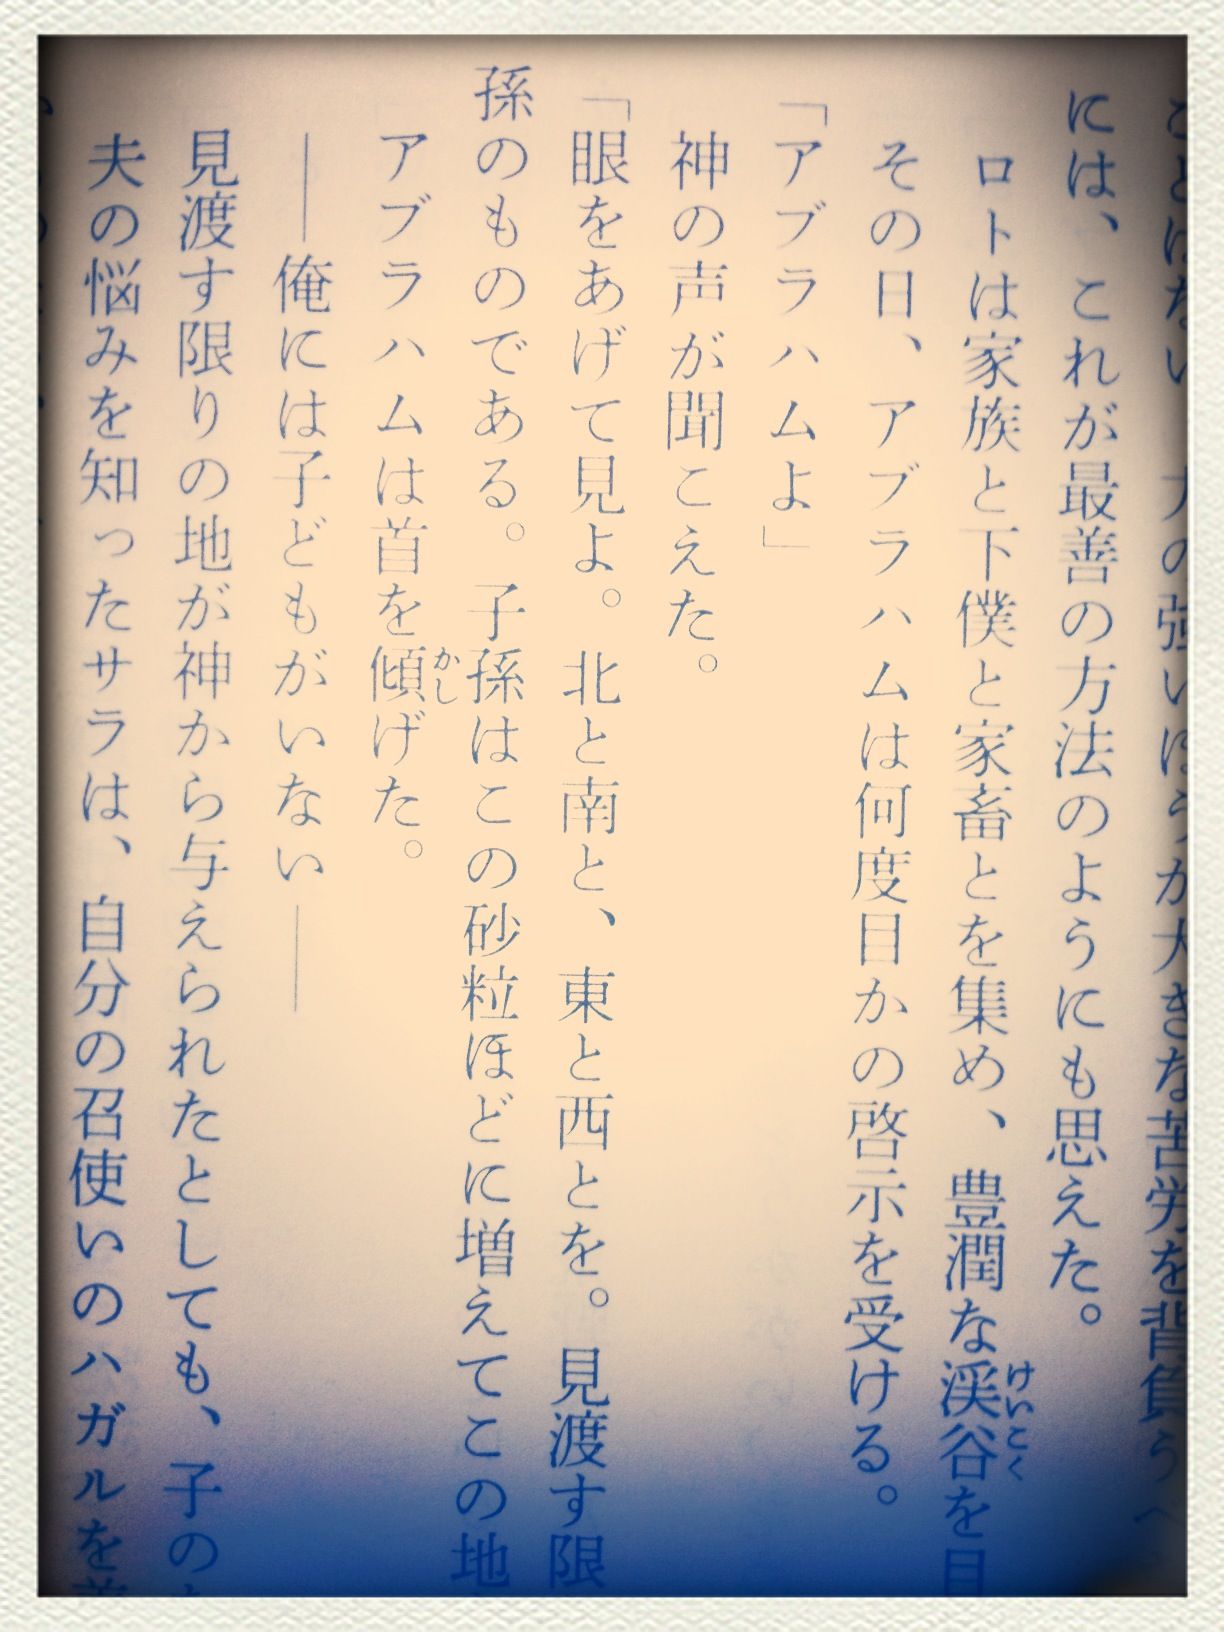 の強いほうが大きな苦労を背負う
には、これが最善の方法のようにも思えた。
ロトは家族と下僕と家畜とを集め、豊潤な渓谷を目
けいこく
その日、アブラハムは何度目かの啓示を受ける。
「アブラハムよ」
神の声が聞こえた。
「眼をあげて見よ。北と南と、東と西とを。見渡す限
孫のものである。子孫はこの砂粒ほどに増えてこの地
かし
アブラハムは首を傾げた。
――俺には子どもがいない――
見渡す限りの地が神から与えられたとしても、子の
夫の悩みを知ったサラは、自分の召使いのハガルを